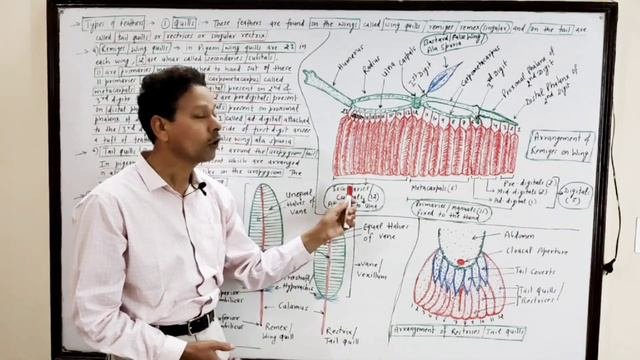 Types of feathers ① Quills :- These feathers are found on the wings called wing quills / remiges remex (singular) and on the tail are
called tail quills or rectrices or singular rectrix.
a) Remiges / Wing quills :- In pigeon wing quills are 23 in
each wing, 12 are ulnar called secondaries / cubitals.
11 are primaries attached to hand. Out of these
11 primaries carpometacarpus called
metacarpals digital present on 2nd &
3rd digits 2 are predigitals present
on distal present on proximal
phalanx called ad digital attached
to the 3rd side of first digit
a tuft of ala spuria
b) Tail quills around the uropygium / tail
In pigeon present which are arranged
on the uropygium. The
Humerus
Radius
Ulna
Carpals
1st Digit
Bastard / False Wing
Ala Spuria
Carpometacarpus
3rd Digit
Proximal Phalanx of
2nd Digit
Distal Phalanx of
2nd Digit
Arrangement of
Remiges on Wing
Metacarpals (6)
Pre-digitals (2)
Mid digitals (2)
Ad digital (1)
Digitals
(5)
Primaries / Manuals (11)
fixed to the Hand
Unequal
Halves of
Vane
Equal Halves
of vane
Vane /
Vexillum
Calamus
Remex /
Wing quill
Rectrix /
Tail quill
Abdomen
Cloacal Aperture
Tail Coverts
Tail Quills
/ Rectrices
Arrangement of Rectrices / Tail quills